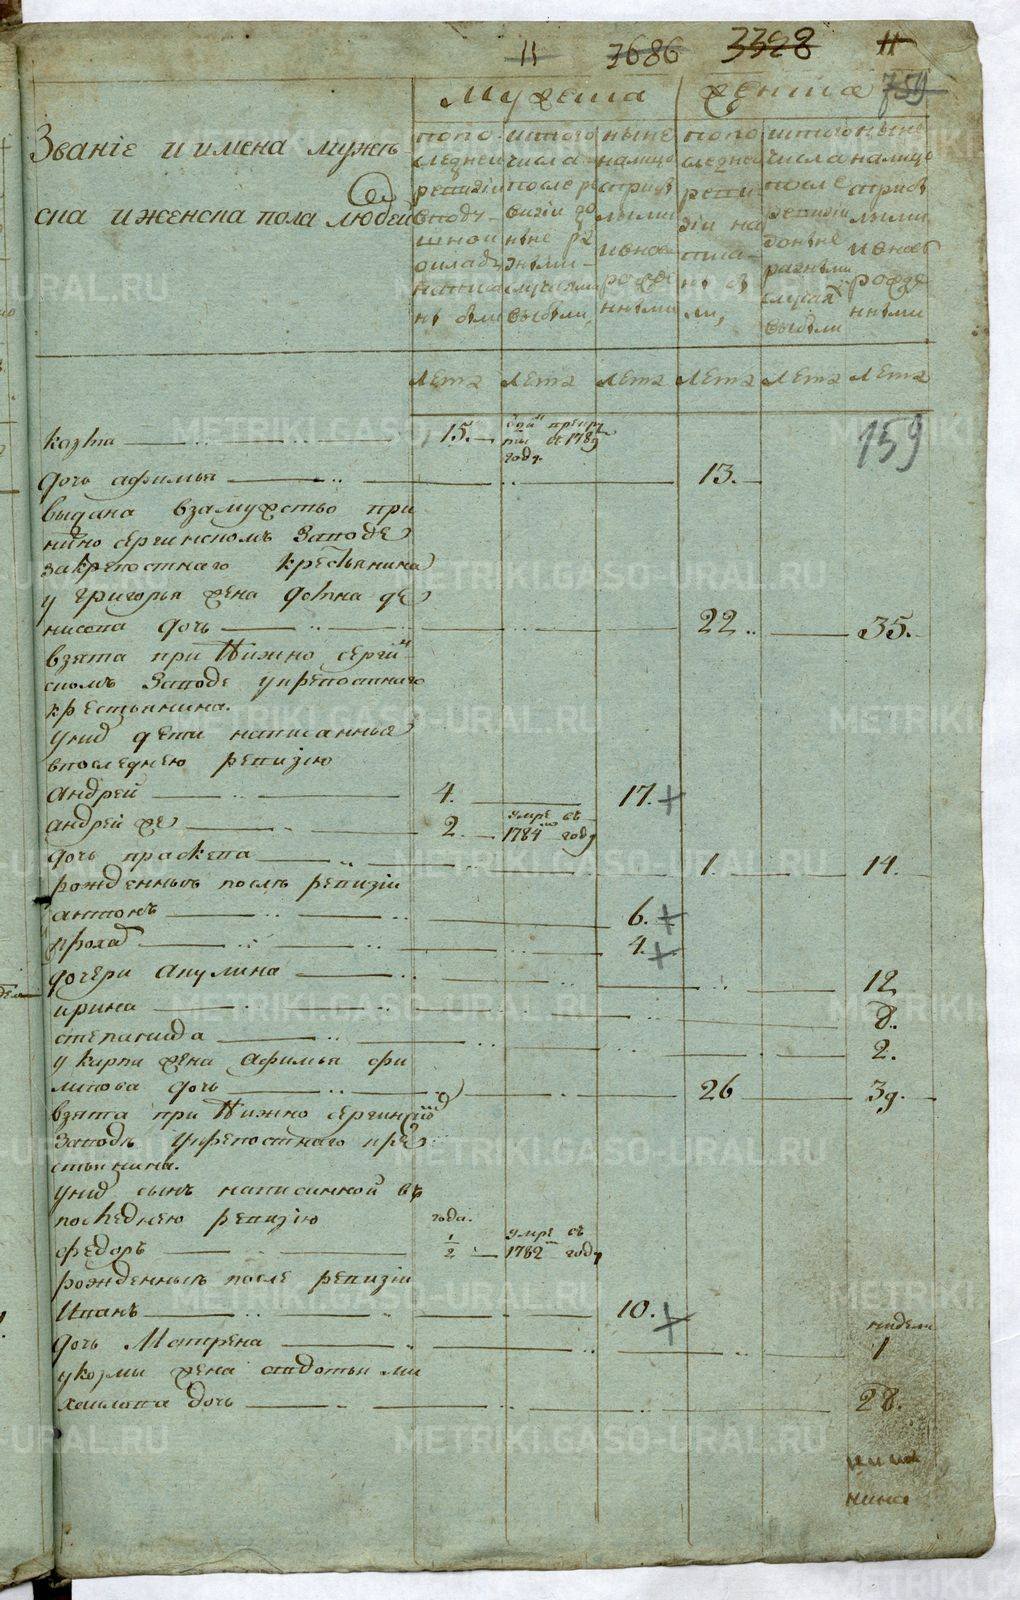 11 3686 3328 11
759
Мужеска женска
Званiе и имена мужеска
и женска пола людей
По последней ревизiи в подушной оклад написаны были
из того числа после ревизiи до ныне разными случаями выбыли,
ныне на лицо с прибылыми и вновь рожденными
по последней ревизiи написаны были,
из того числа после ревизiи доныне разными случаями выбыли
ныне на лицо с прибылыми и вновь рожденными
лета лета лета лета лета лета
159
козма 15. в 1783 году
дочь афимья 13.
выдана в замужство при
нижно сергинскомъ заводе
за крепостнаго крестьянина
у григорья жена фотина де
нисова дочь 22 35.
взята при Нижно сергин
скомъ заводе у крепостнаго
крестьянина.
у них дети написанныя
в последнею ревизiю
андрей 4. 17.
андрей же 2. умре въ 1784м году
дочь прасковья 1. 14.
рожденныя послѣ ревизiи
антонъ 6.
прохор 4.
дочери акулина 12
ирина 8.
степанида 2.
у карпа жена афимья фи
липова дочь 26 39.
взята при Нижно сергинском
заводе у крепостнаго кре
стьянина.
у них сынъ написанной въ
последнею ревизiю года.
федоръ 1/2 умре въ 1782м году
рожденныя после ревизiи
Иванъ 10.
дочь Матрена недели 1
у козмы жена авдотья ми
хаилова дочь 28.